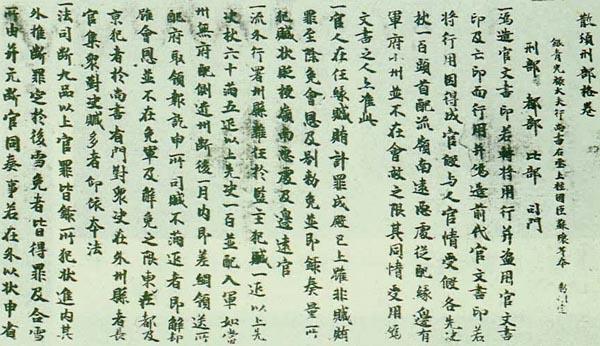 散頒刑部格卷
銀青光祿大夫行尚書右丞上柱國臣蘇瓌等奉 勅删定
刑部 都部 比部 司門
一偽造官文書印若轉將用行并盜用官文書
印及亡印而行用并偽造前代官文書印若
將行用因得成官假与人官情受假各先决
杖一百頭首配流嶺南遠惡處從配緣邊有
軍府小州並不在會赦之限其同情受用偽
文書之人亦准此
一官人在任緣贓賄計罪成殿已上雖非贓賄
罪至除免會恩及別勅免並即錄奏量所
犯贓狀貶授嶺南惡處及邊遠官
一流外行署州縣雜任於監主犯贓一疋以上先
决杖六十滿五疋以上先决一百並配入軍如當
州無府配側近州斷後一月內即差綱領送所
配府取領報訖申所司贓不滿疋者即解却
雖會恩並不在免軍及解免之限東都及
京犯者於尚書省門對衆决在外州縣者長
官集衆對决贓多者仰依本法
一法司斷九品以上官罪皆錄所犯狀進內其
外推斷罪定於後雪免者皆得罪及合雪
所由并元斷官同奏事若在外以狀申省